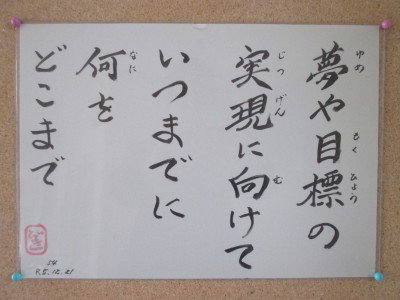 ゆめ もくひょう
夢や目標の
じつ げん む
実現に向けて
いつまでに
なに
何を
どこまで
54
5.12.21